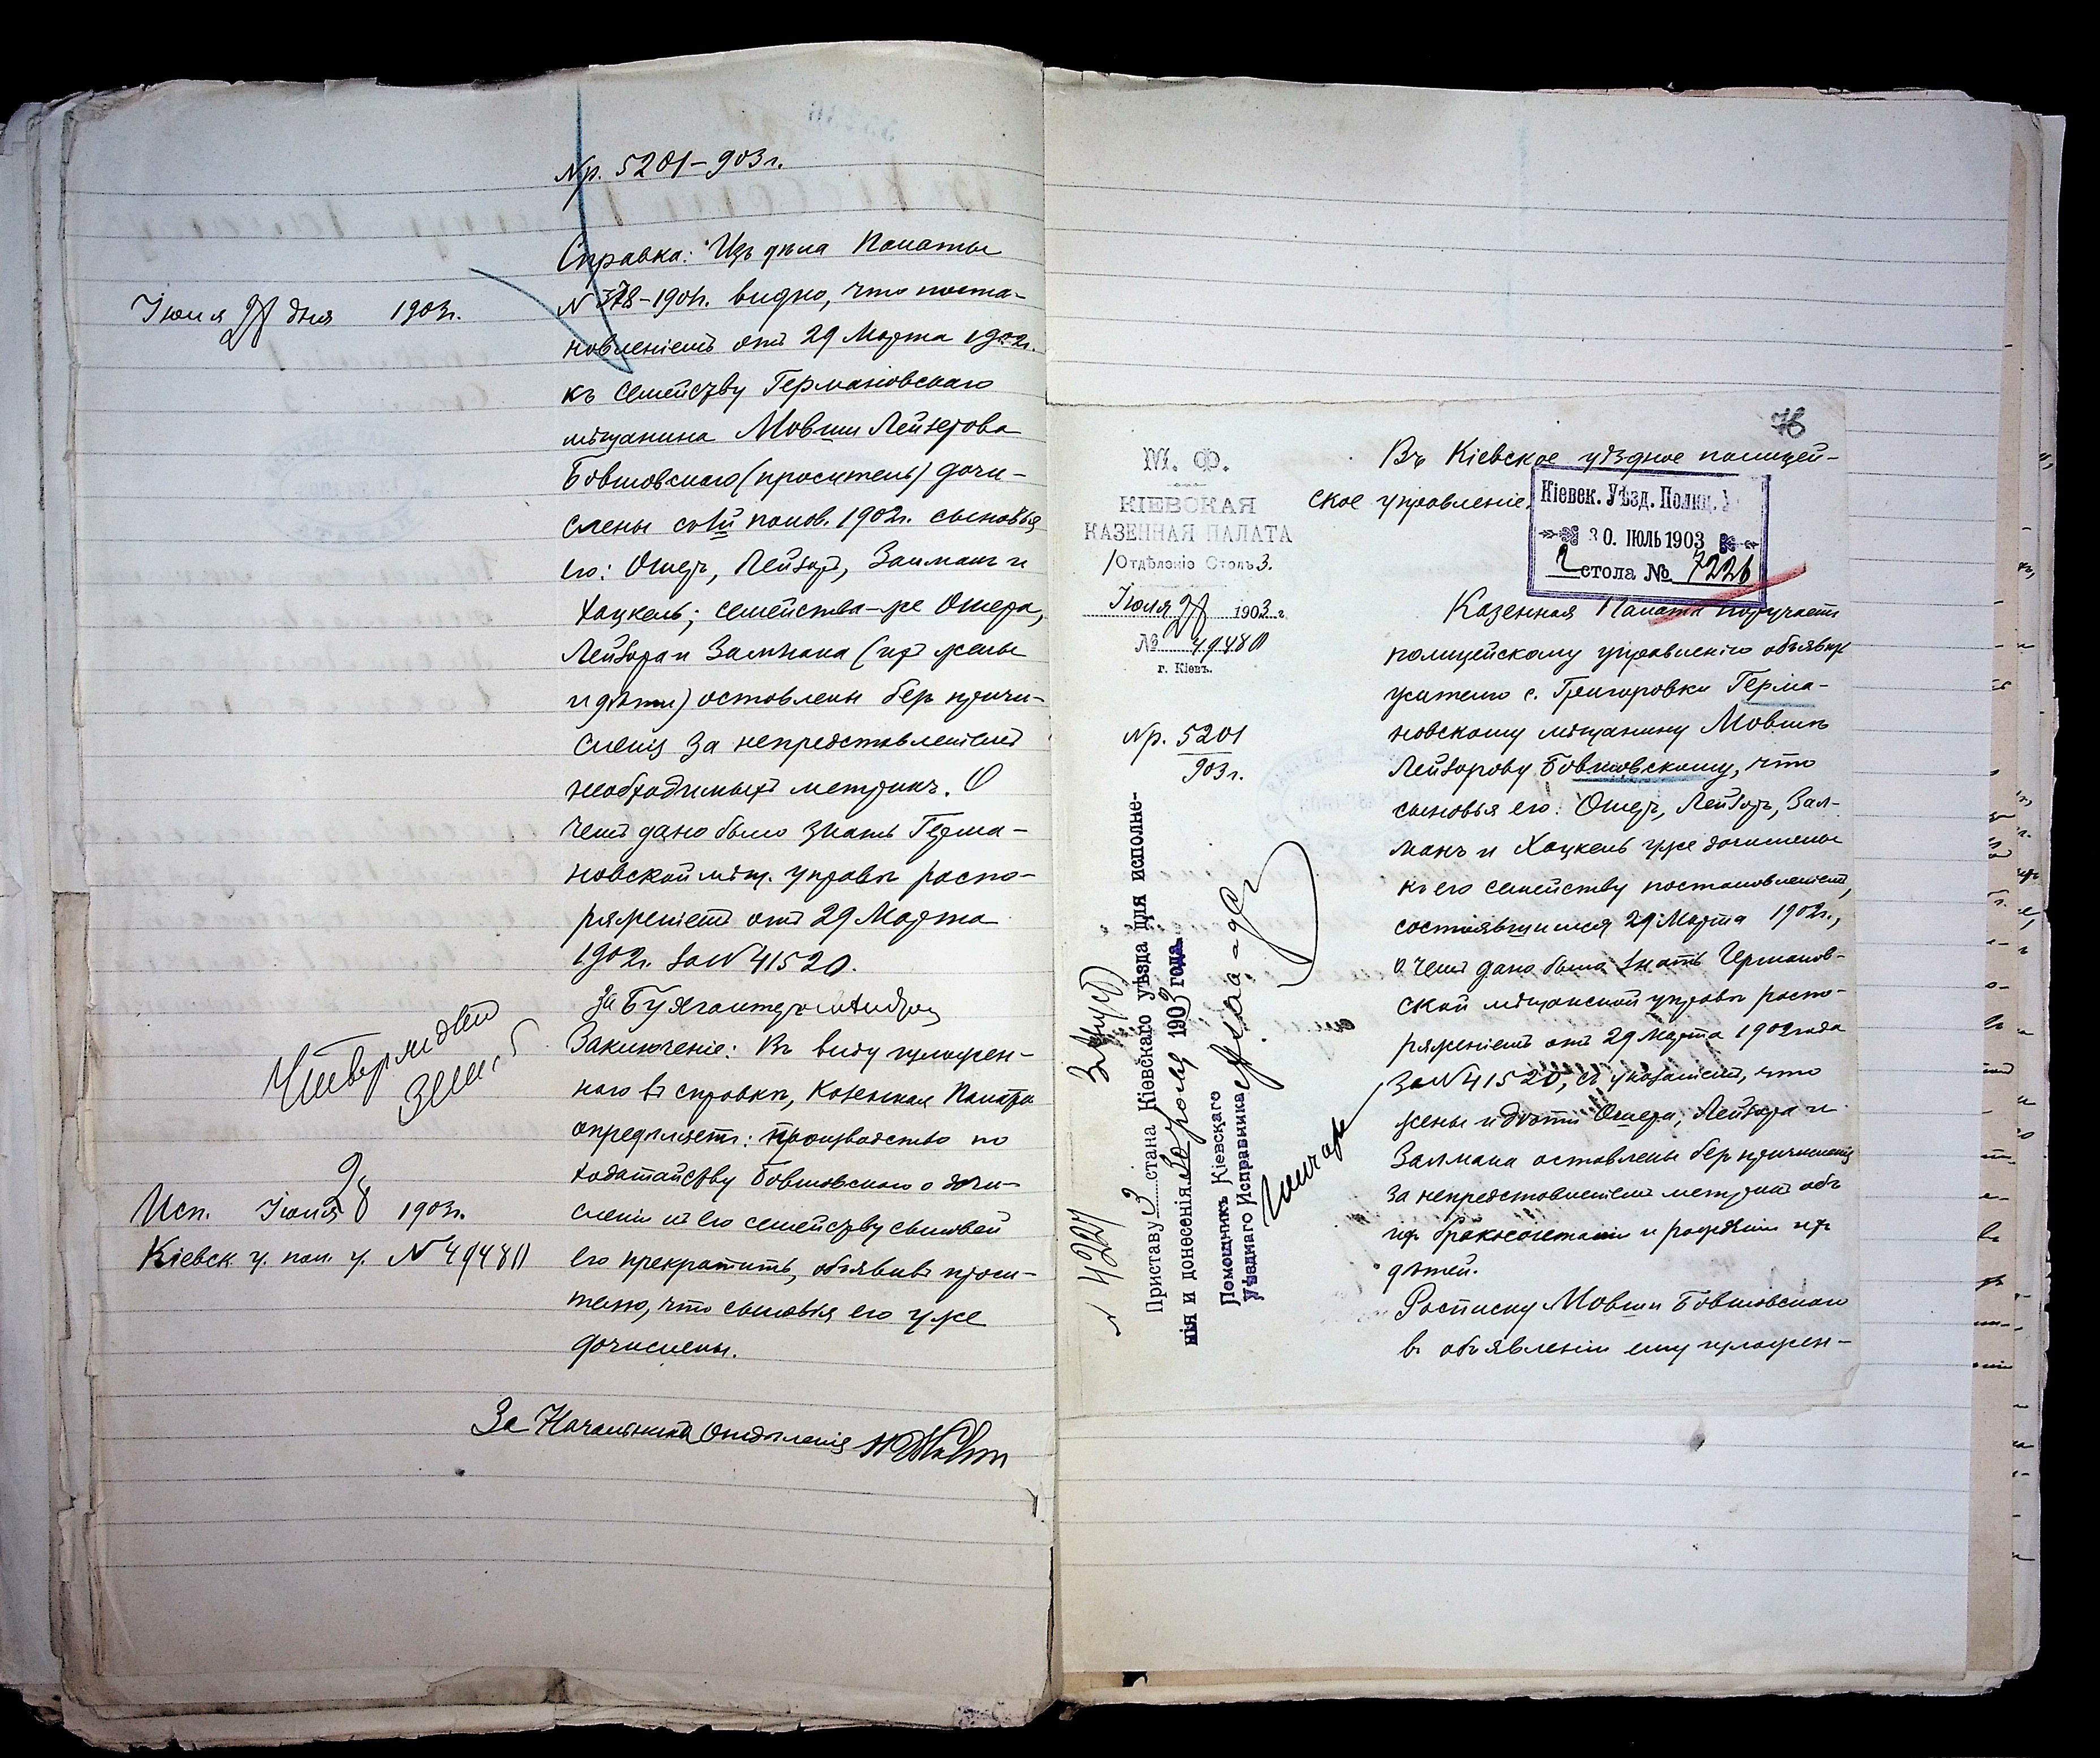 Пр. 5201-903 г.
Іюля 28 дня 1903 г.
Справка: Изъ дѣла Палаты
N 378-1901 г. видно, что поста-
новленіемъ отъ 29 Марта 1902 г.
къ семейству Германовскаго
мѣщанина Мовши Лейзерова
Бовшовскаго (проситель) дочи-
слены со 2й полов. 1902 г. сыновья
его: Ошеръ, Лейзоръ, Залманъ и
Хацкель; семейства-же Ошера,
Лейзора и Залмана (их жены
и дѣти) оставлены безъ причи-
сленія за непредставленіемъ
необходимыхъ метрикъ. О
чемъ дано было знать Герма-
новской мѣщ. управѣ распо-
ряженіемъ отъ 29 Марта
1902 г. за N 41520.
За Бухгалтера
Утверждаю
Заключеніе: Въ виду изложен-
наго въ справкѣ, Казенная Палата
опредѣляетъ: производство по
ходатайству Бовшовскаго о дочи-
сленіи къ его семейству сыновей
его прекратить, объявивъ проси-
телю, что сыновья его уже
дочислены.
Исп. Іюля 28 1903 г.
Кіевск. у. пол. у. N 49480
За Начальника Отдѣленія
76
М. Ф.
КІЕВСКАЯ
КАЗЕННАЯ ПАЛАТА
1 Отдѣленіе Столъ 3.
Іюля 28 1903 г.
№ 49480
г. Кіевъ.
Пр. 5201
903 г.
Въ Кіевское уѣздное полицей-
ское управленіе.
Кіевск. Уѣзд. Полиц. У
30. ІЮЛЬ 1903
2 стола № 7226
Казенная Палата поручаетъ
полицейскому управленію объявить
жителю с. Григоровки Герма-
новскому мѣщанину Мовшѣ
Лейзорову Бовшовскому, что
сыновья его: Ошеръ, Лейзоръ, Зал-
манъ и Хацкель уже дочислены
къ его семейству постановленіемъ,
состоявшимся 29 Марта 1902 г.,
о чемъ дано было знать Германов-
ской мѣщанской управѣ распо-
ряженіемъ отъ 29 Марта 1902 года
за N 41520, съ указаніемъ, что
жены и дѣти Ошера, Лейзора и
Залмана оставлены безъ причисленія
за непредставленіемъ метрикъ объ
ихъ бракосочетаніи и рожденіи ихъ
дѣтей.
Росписку Мовши Бовшовскаго
въ объявленіи ему изложен-
N 4227
Приставу 3 стана Кіевскаго уѣзда для исполне-
нія и донесенія 30 іюля 1903 года.
Помощникъ Кіевскаго
Уѣзднаго Исправника